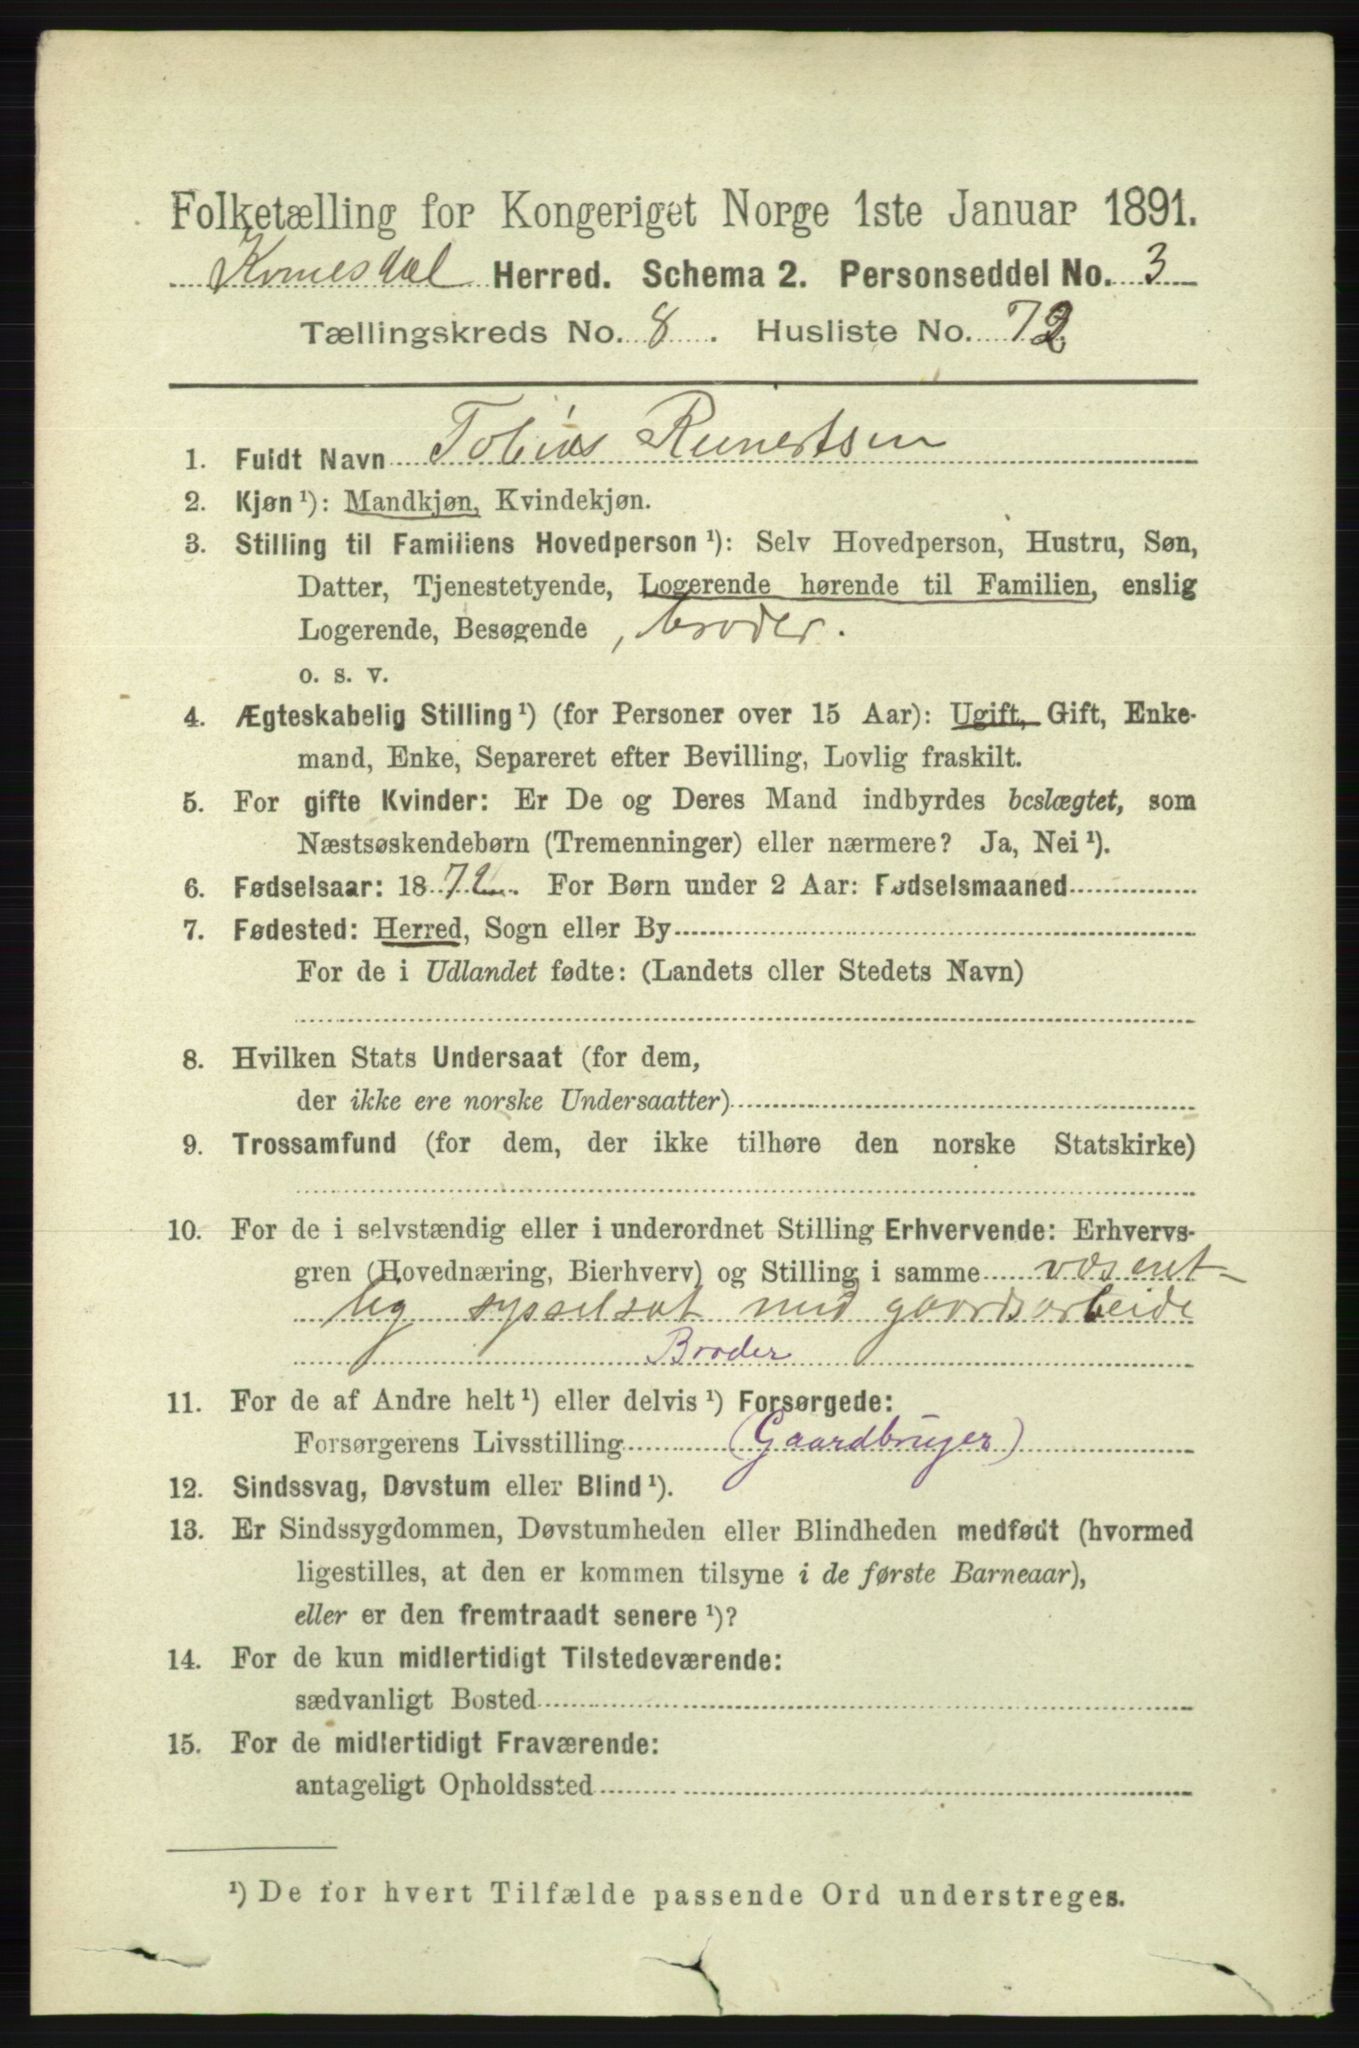 Folketælling for Kongeriget Norge 1ste Januar 1891.
Kvinesdal Herred. Schema 2. Personseddel No. 3
Tællingskreds No. 8. Husliste No. 72
1. Fuldt Navn Tobias Reinertsen
2. Kjøn ¹): Mandkjøn, Kvindekjøn.
3. Stilling til Familiens Hovedperson ¹): Selv Hovedperson, Hustru, Søn,
Datter, Tjenestetyende, Logerende hørende til Familien, enslig
Logerende, Besøgende , broder.
o. s. v.
4. Ægteskabelig Stilling ¹) (for Personer over 15 Aar): Ugift, Gift, Enke-
mand, Enke, Separeret efter Bevilling, Lovlig fraskilt.
5. For gifte Kvinder: Er De og Deres Mand indbyrdes beslægtet, som
Næstsøskendebørn (Tremenninger) eller nærmere? Ja, Nei ¹).
6. Fødselsaar: 1872. For Børn under 2 Aar: Fødselsmaaned
7. Fødested: Herred, Sogn eller By
For de i Udlandet fødte: (Landets eller Stedets Navn)
8. Hvilken Stats Undersaat (for dem,
der ikke ere norske Undersaatter)
9. Trossamfund (for dem, der ikke tilhøre den norske Statskirke)
10. For de i selvstændig eller i underordnet Stilling Erhvervende: Erhvervs-
gren (Hovednæring, Bierhverv) og Stilling i samme væsent-
lig sysselsat med gaardsarbeide
Broder
11. For de af Andre helt ¹) eller delvis ¹) Forsørgede:
Forsørgerens Livsstilling (Gaardbruger)
12. Sindssvag, Døvstum eller Blind ¹).
13. Er Sindssygdommen, Døvstumheden eller Blindheden medfødt (hvormed
ligestilles, at den er kommen tilsyne i de første Barneaar),
eller er den fremtraadt senere ¹)?
14. For de kun midlertidigt Tilstedeværende:
sædvanligt Bosted
15. For de midlertidigt Fraværende:
antageligt Opholdssted
¹) De for hvert Tilfælde passende Ord understreges.